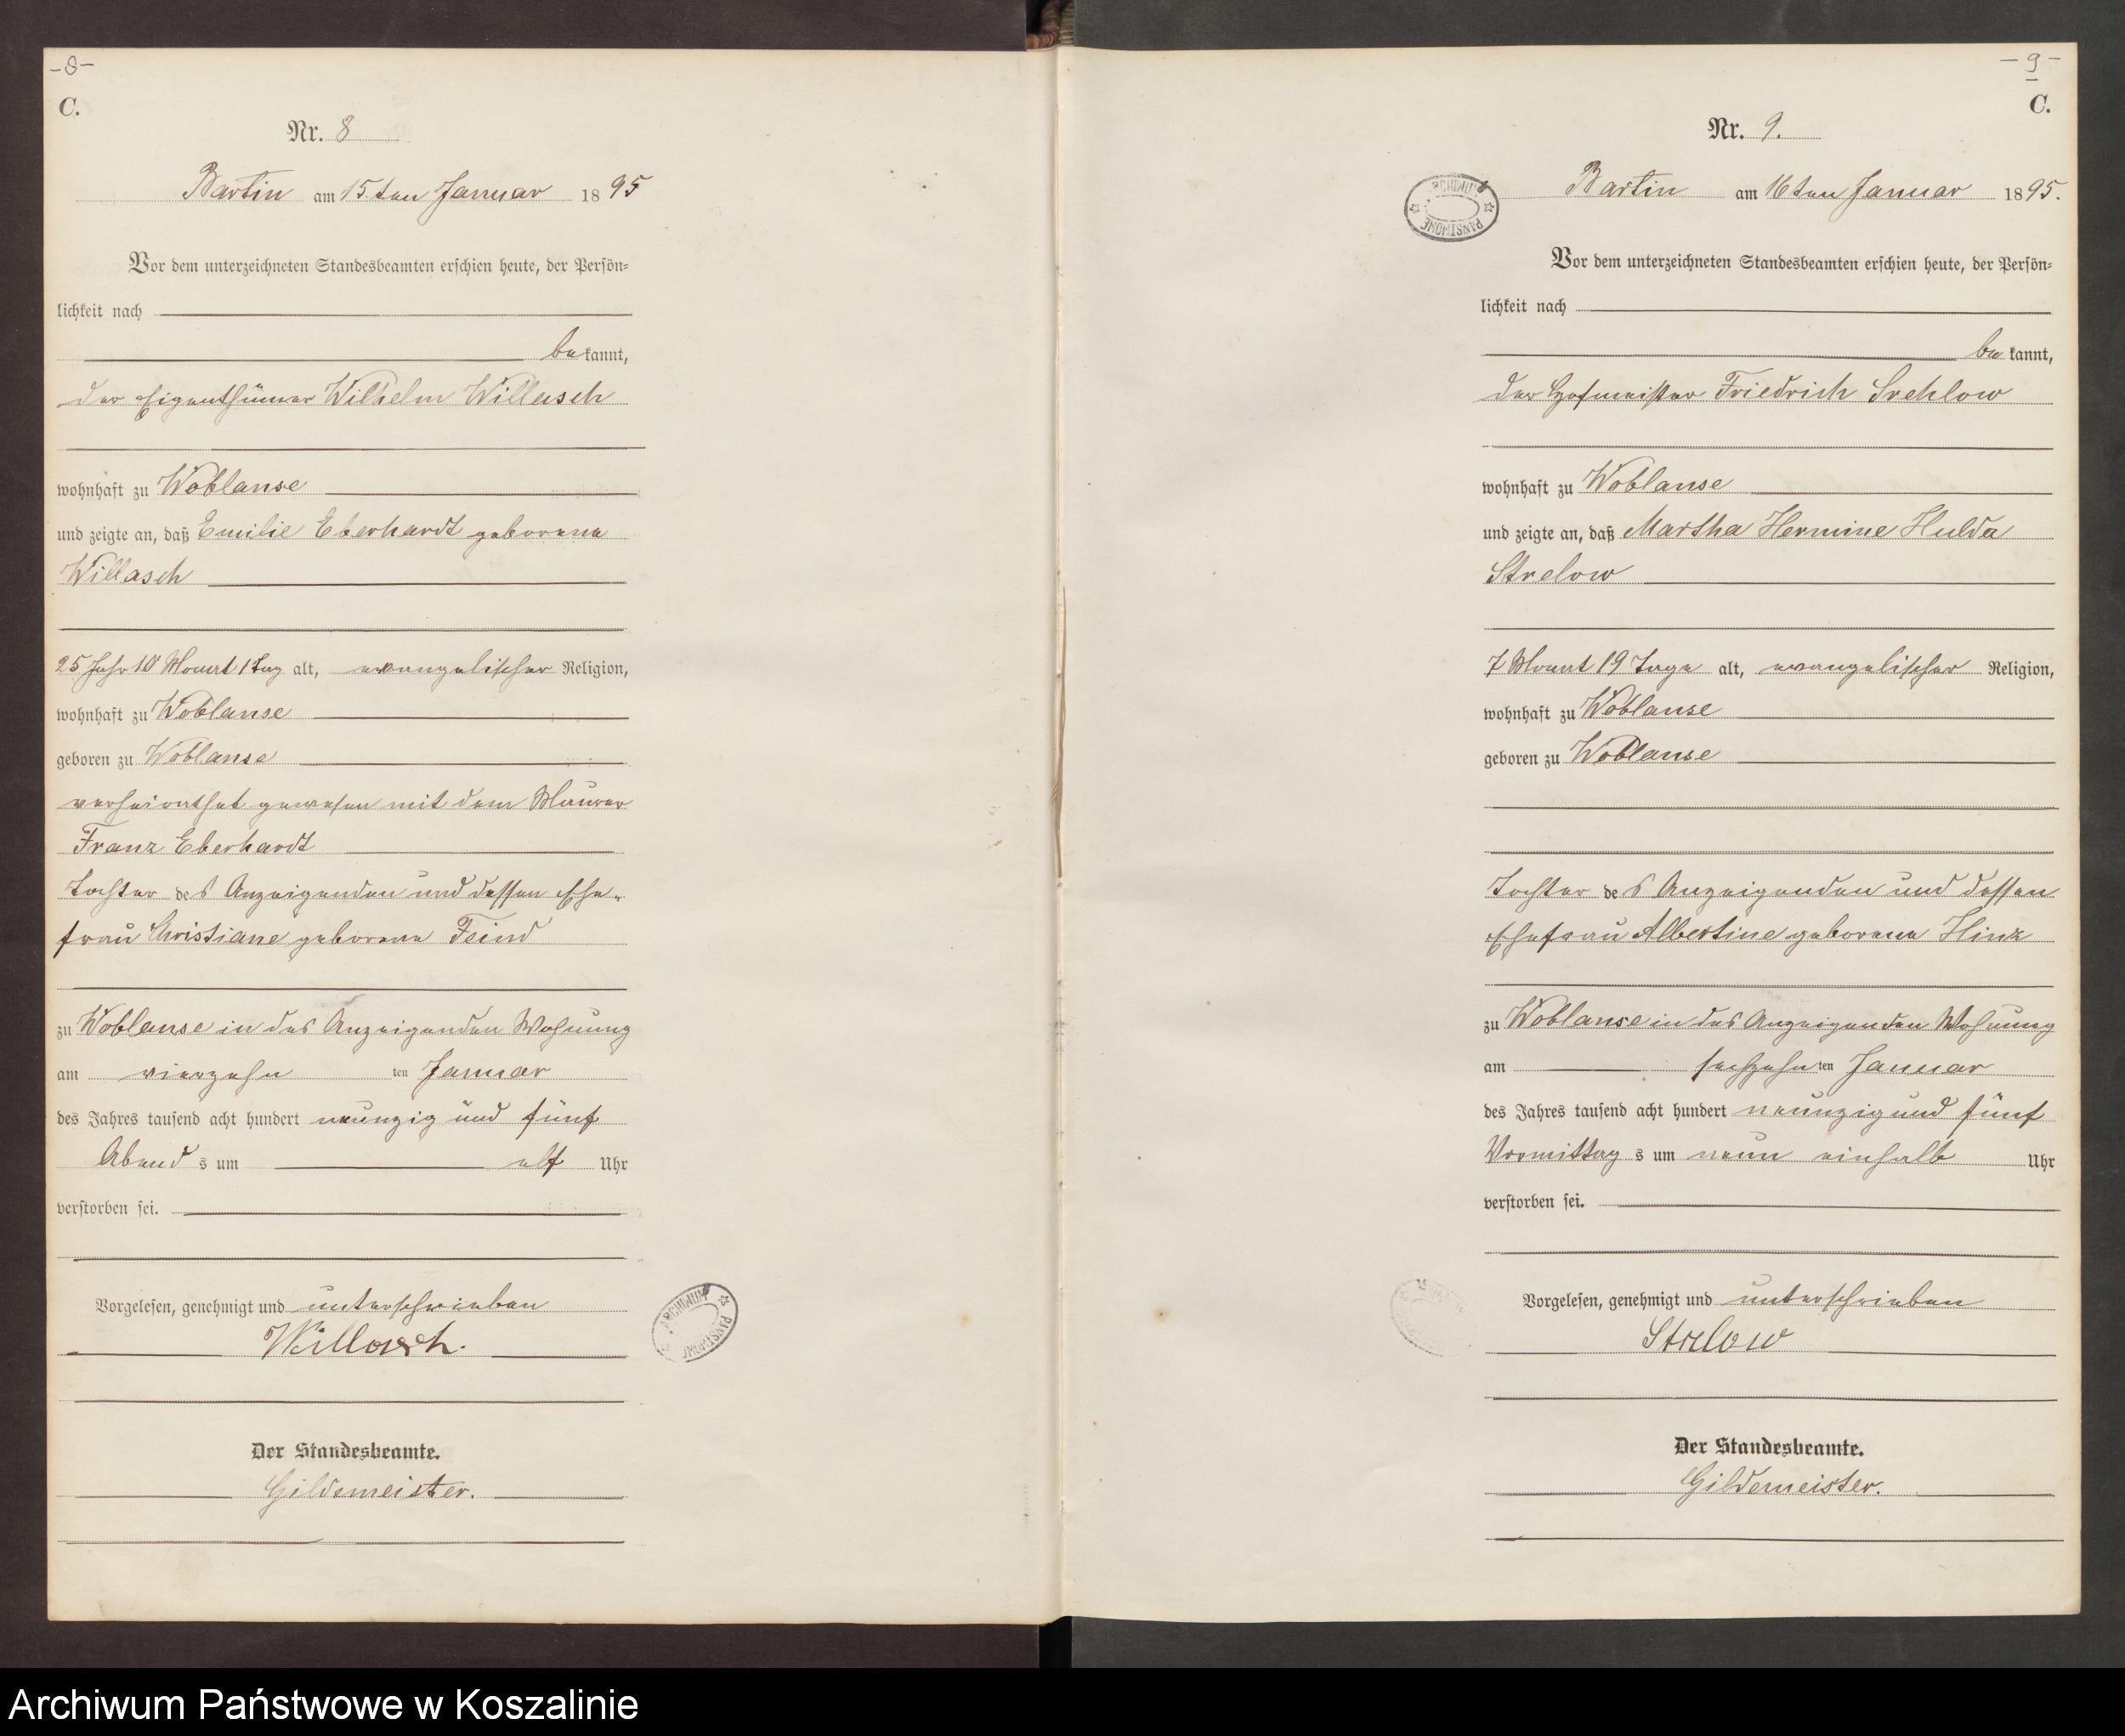 -8-
C.
Nr. 8
Bartin am 15ten Januar 1895
Vor dem unterzeichneten Standesbeamten erschien heute, der Persön=
lichkeit nach
bekannt,
der Eigenthümer Wilhelm Willasch
wohnhaft zu Woblanse
und zeigte an, daß Emilie Eberhardt geborene
Willasch
25 Jahr 10 Monat 1 Tag alt, evangelischer Religion,
wohnhaft zu Woblanse
geboren zu Woblanse
verheirathet gewesen mit dem Maurer
Franz Eberhardt
Tochter des Anzeigenden und dessen Ehe-
frau Christiane geborene Feind
zu Woblanse in des Anzeigenden Wohnung
am vierzehn ten Januar
des Jahres tausend acht hundert neunzig und fünf
Abend s um elf Uhr
verstorben sei.
Vorgelesen, genehmigt und unterschrieben
Willasch.
Der Standesbeamte.
Gildemeister.
ARCHIWUM PAŃSTWOWE
-9-
C.
Nr. 9.
Bartin am 16ten Januar 1895.
ARCHIWUM PAŃSTWOWE
Vor dem unterzeichneten Standesbeamten erschien heute, der Persön=
lichkeit nach
bekannt,
der Hofmeister Friedrich Strehlow
wohnhaft zu Woblanse
und zeigte an, daß Martha Hermine Hulda
Strelow
7 Monat 19 Tage alt, evangelischer Religion,
wohnhaft zu Woblanse
geboren zu Woblanse
Tochter des Anzeigenden und dessen
Ehefrau Albertine geborene Hinz
zu Woblanse in des Anzeigenden Wohnung
am sechzehn ten Januar
des Jahres tausend acht hundert neunzig und fünf
Vormittag s um neun einhalb Uhr
verstorben sei.
Vorgelesen, genehmigt und unterschrieben
Strelow
Der Standesbeamte.
Gildemeister.
Archiwum Państwowe w Koszalinie